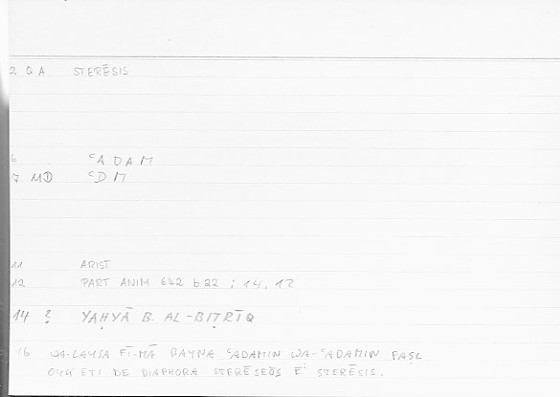 2 QA STERĒSIS
6 ʿADAM
7 MD ʿDM
11 ARIST
12 PART ANIM 642 b 22 ; 14.12
14 ? YAḤYĀ B. AL-BIṬRĪQ
16 WA-LAYSA FĪ-MĀ BAYNA ʿADAMIN WA-ʿADAMIN FAṢL
OUK ETI DE DIAPHORA STERĒSEŌS Ē STERĒSIS.